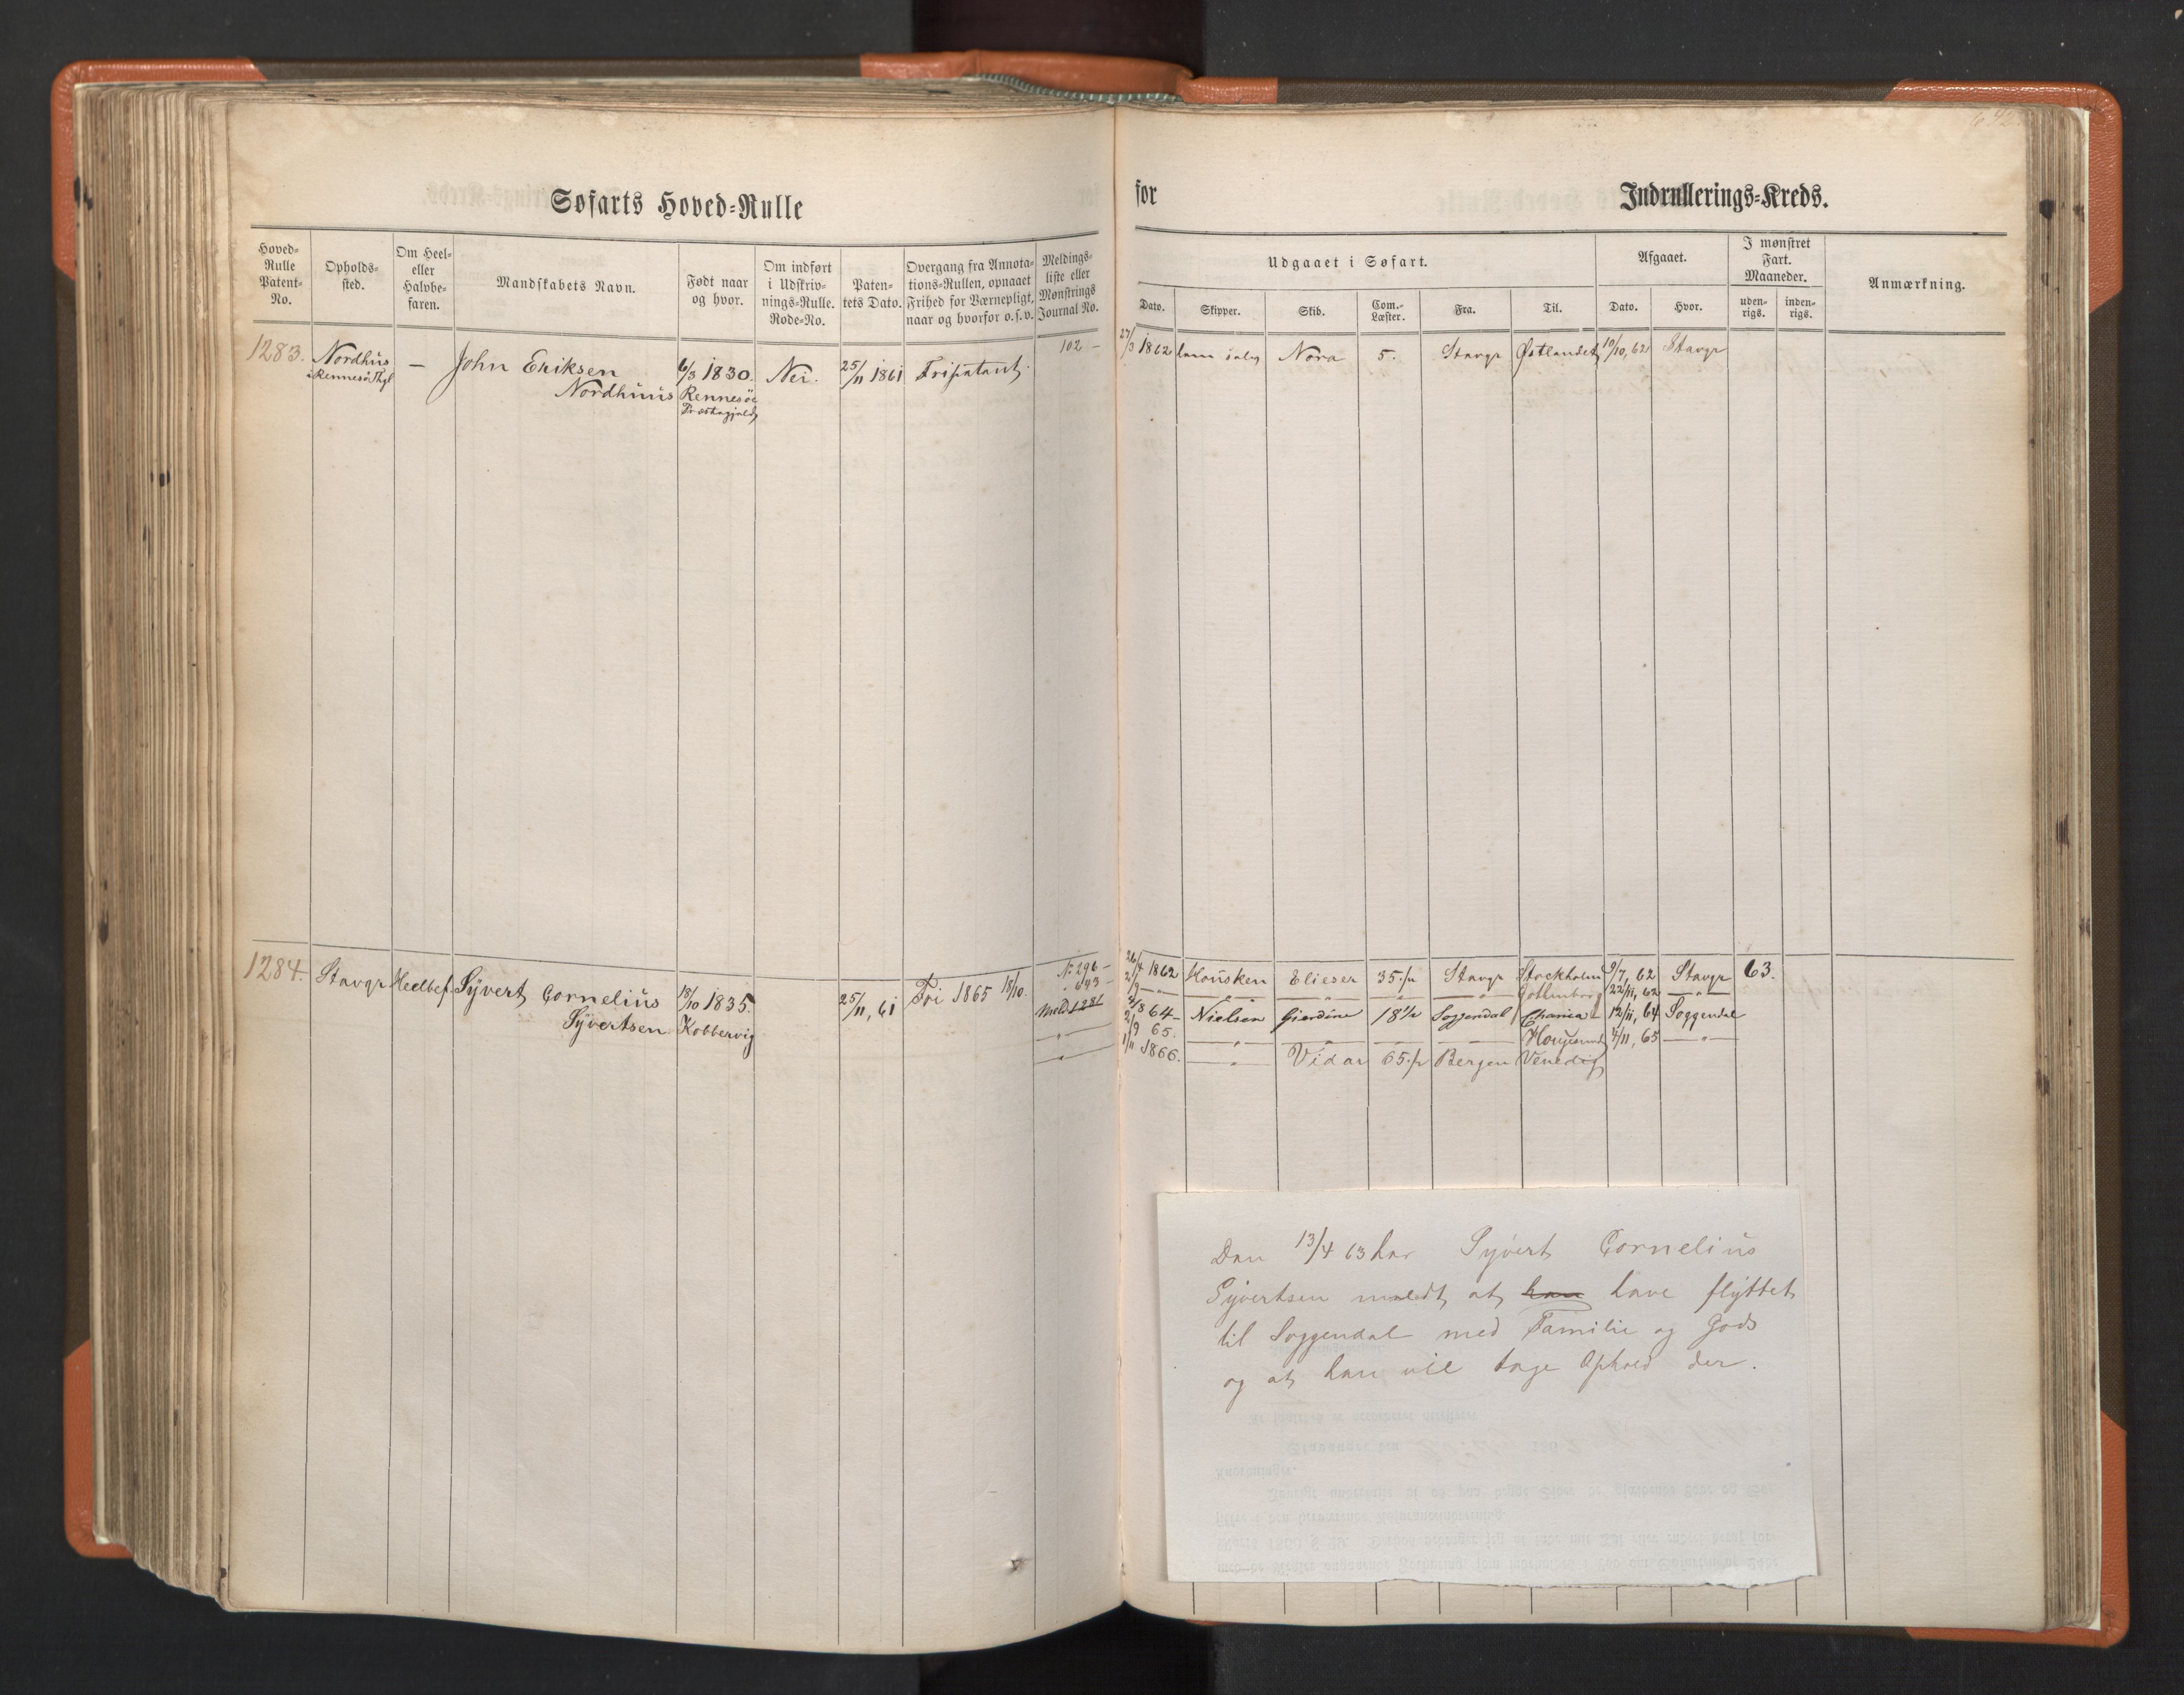 Søfarts Hoved-Rulle
for
Indrullerings-Kreds.
642
Hoved-Rulle Patent-No.
Opholds-sted.
Om Heel- eller Halvbe-faren.
Mandskabets Navn.
Født naar og hvor.
Om indført i Udskriv-nings-Rulle. Rode-No.
Paten-tets Dato.
Overgang fra Annota-tions-Rullen, opnaaet Frihed for Værnepligt, naar og hvorfor o. s. v.
Meldings-liste eller Mønstrings Journal No.
Udgaaet i Søfart.
Dato.
Skipper.
Skib.
Com.-Læster.
Fra.
Til.
Afgaaet.
Dato.
Hvor.
I mønstret Fart. Maaneder.
uden-rigs.
inden-rigs.
Anmærkning.
1283. Nordhus — John Eriksen 6/3 1830. Nei. 25/11 1861 Fripatent. 102 — 27/3 1862 Nora 5. Stavgr Østlandet 10/10, 62 Stavgr
i Rennesø Nordhuus Rennesøe
Præstegjeld
1284. Stavgr Heelbef. Syvert Cornelius 18/10 1835. 25/11, 61 Fri 1865 18/10. No 296 — 26/4 1862 Housken Elieser 35./. Stavgr Stockholm 9/7, 62 Stavgr 63.
Syvertsen Kobbervig 643 — 2/9 —"— —"— —"— —"— —"— Gothenborg 22/11, 62 —"—
Meld 1281 64 — Nielsen Gierdine 18½ Soggendal Chania 12/11, 64 Soggendal
—"— 2/9 65. —"— —"— — —"— Haugesund 4/11, 65 —"—
—"— 1/11 1866. —"— Vidar 65./. Bergen Venedig
Den 13/4 63 har Syvert Cornelius
Syvertsen meldt at han have flyttet
til Soggendal med Familie og Gods
og at han vil tage Ophold der.